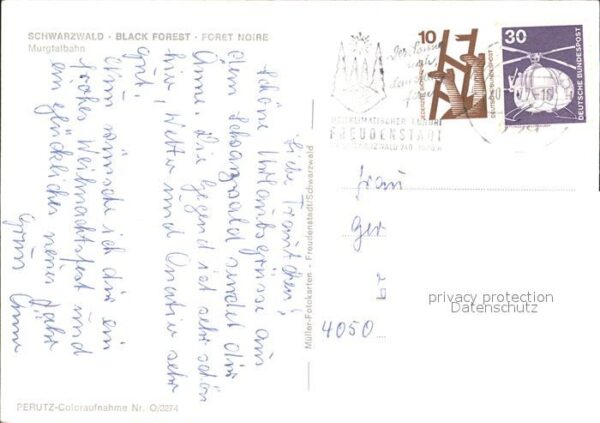 SCHWARZWALD - BLACK FOREST - FORET NOIRE
Murgtalbahn
Liebe Trautchen!
Schöne Urlaubsgrüsse aus
dem Schwarzwald sendet dir
Anne. Die Gegend ist sehr schön
hier, Wetter und Quartier sehr
gut.
Nun wünsche ich dir ein
frohes Weihnachtsfest und
ein glückliches neues Jahr
Gruss Anne
PERUTZ-Coloraufnahme Nr. O/3274
Müller-Fotokarten - Freudenstadt/Schwarzwald
10
DEUTSCHE BUNDESPOST
30
DEUTSCHE BUNDESPOST
HEILKLIMATISCHER KURORT
FREUDENSTADT
Frau
Ger
br
4050
privacy protection
Datenschutz